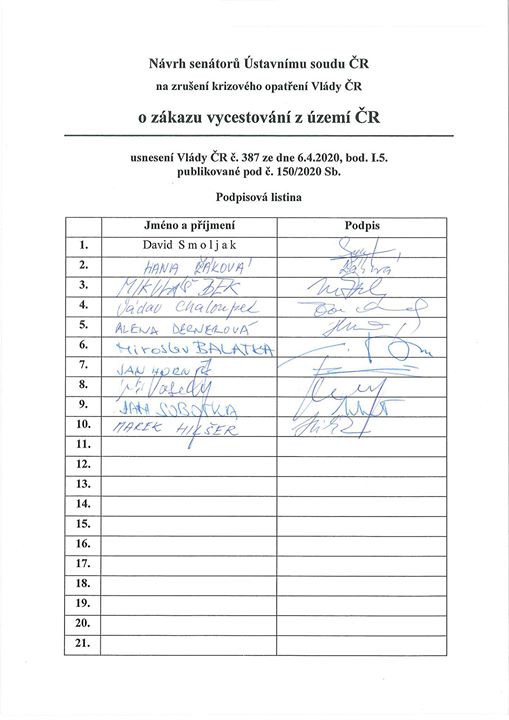 Návrh senátorů Ústavnímu soudu ČR
na zrušení krizového opatření Vlády ČR
o zákazu vycestování z území ČR
usnesení Vlády ČR č. 387 ze dne 6.4.2020, bod. I.5.
publikované pod č. 150/2020 Sb.
Podpisová listina
Jméno a příjmení Podpis
1. David Smoljak
2. HANA ŽÁKOVÁ
3. MIKULÁŠ BEK
4. Václav Chaloupek
5. ALENA DERNEROVÁ
6. Miroslav BALATKA
7. JAN HORNÍK
8. Jiří Vosecký
9. JAN SOBOTKA
10. MAREK HILŠER
11.
12.
13.
14.
15.
16.
17.
18.
19.
20.
21.